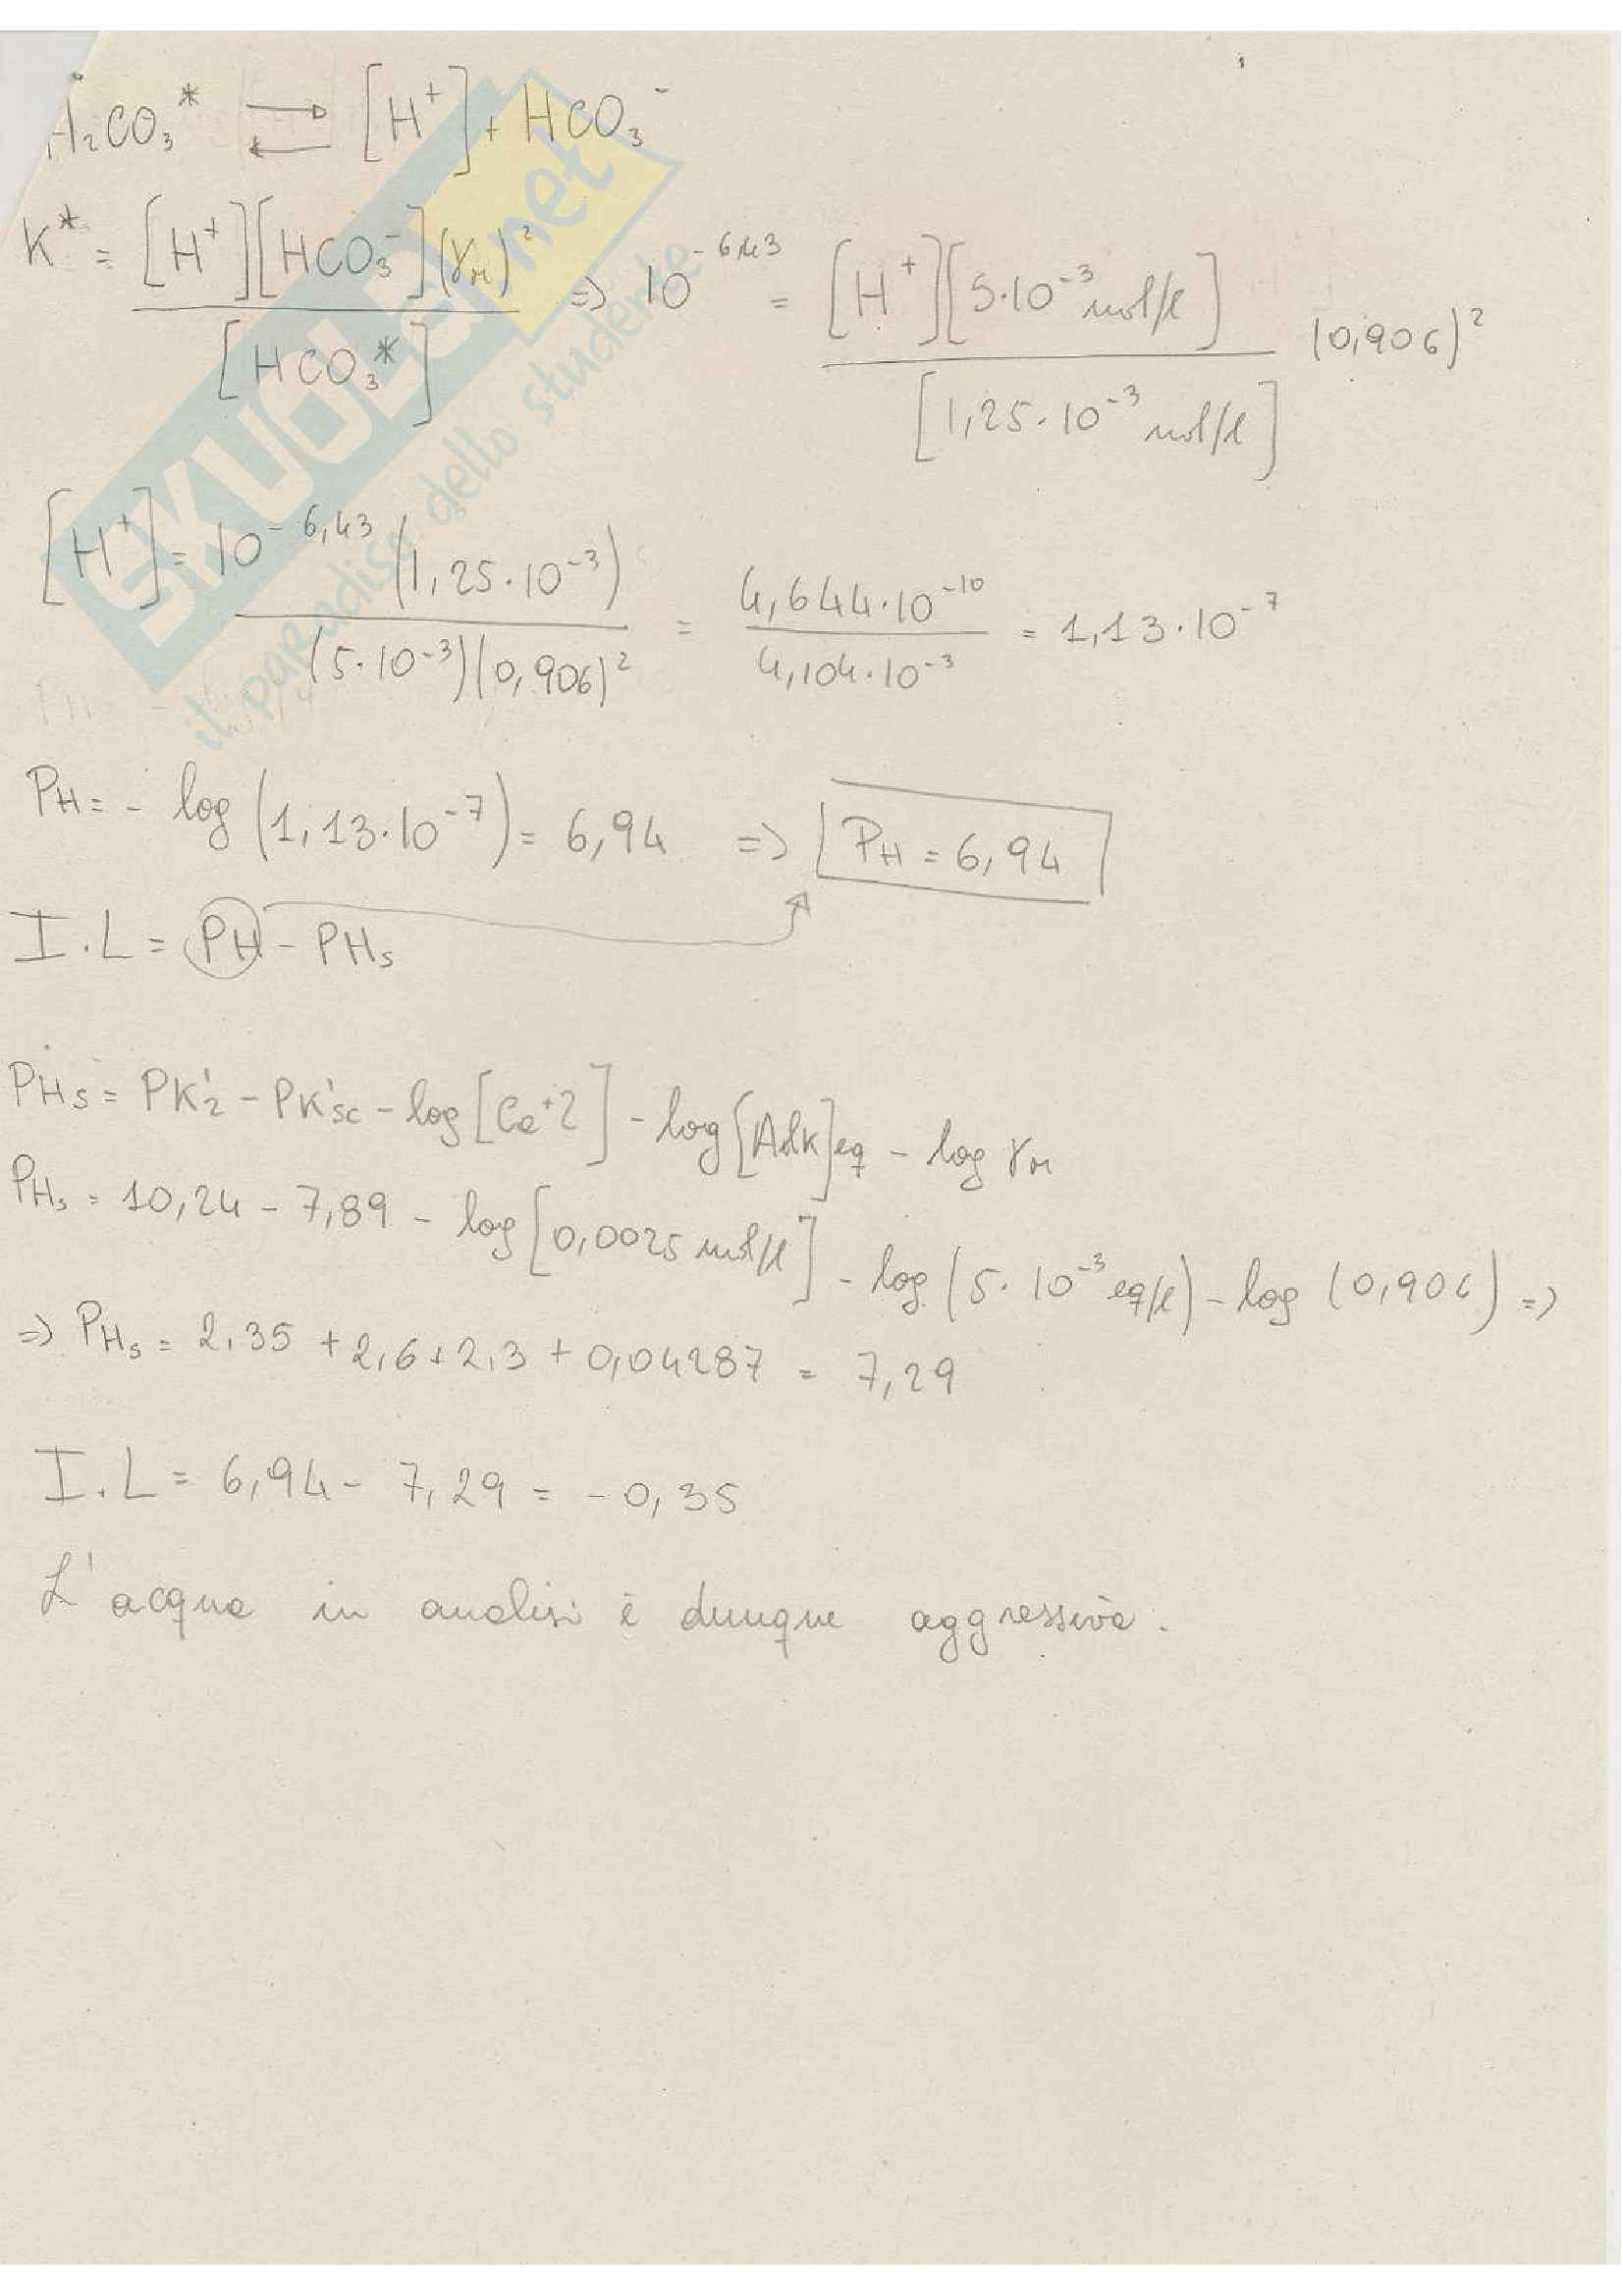 H₂CO₃* ⇄ [H⁺] + HCO₃⁻
K* = [H⁺][HCO₃⁻](γm)² / [HCO₃*] => 10^-6,43 = [H⁺][5·10⁻³ mol/l] / [1,25·10⁻³ mol/l] (0,906)²
[H⁺] = 10^-6,43 (1,25·10⁻³) / (5·10⁻³)(0,906)² = 4,644·10⁻¹⁰ / 4,104·10⁻³ = 1,13·10⁻⁷
PH = - log (1,13·10⁻⁷) = 6,94 => PH = 6,94
I.L = PH - PHs
PHs = PK'₂ - PK'sc - log [Ca⁺2] - log [Alk]eq - log γm
PHs = 10,24 - 7,89 - log [0,0025 mol/l] - log (5·10⁻³ eq/l) - log (0,906) =>
=> PHs = 2,35 + 2,6 + 2,3 + 0,04287 = 7,29
I.L = 6,94 - 7,29 = - 0,35
L'acqua in analisi è dunque aggressiva.
SKUOLA.net
il paradiso dello studente